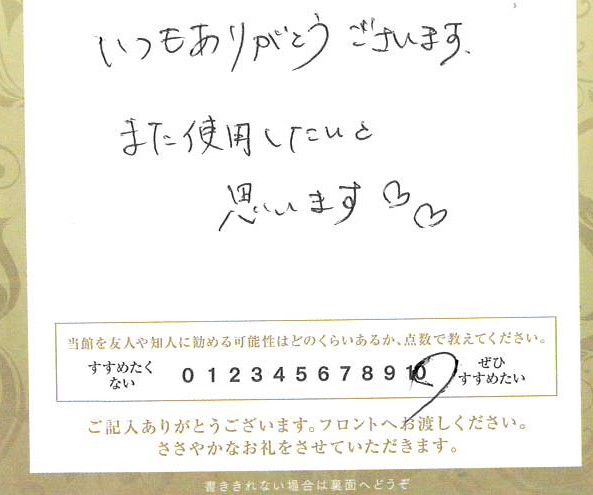 いつもありがとうございます。
また使用したいと
思います♡♡
当館を友人や知人に勧める可能性はどのくらいあるか、点数で教えてください。
すすめたく
ない
0 1 2 3 4 5 6 7 8 9 10
ぜひ
すすめたい
ご記入ありがとうございます。フロントへお渡しください。
ささやかなお礼をさせていただきます。
書ききれない場合は裏面へどうぞ